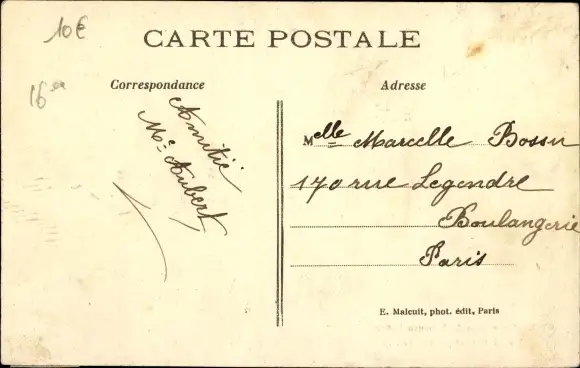 10€
CARTE POSTALE
16er
Correspondance
Adresse
Amitié
Mc Aubert
Melle Marcelle Bossu
170 rue Legendre
Boulangerie
Paris
E. Malcuit, phot. édit, Paris